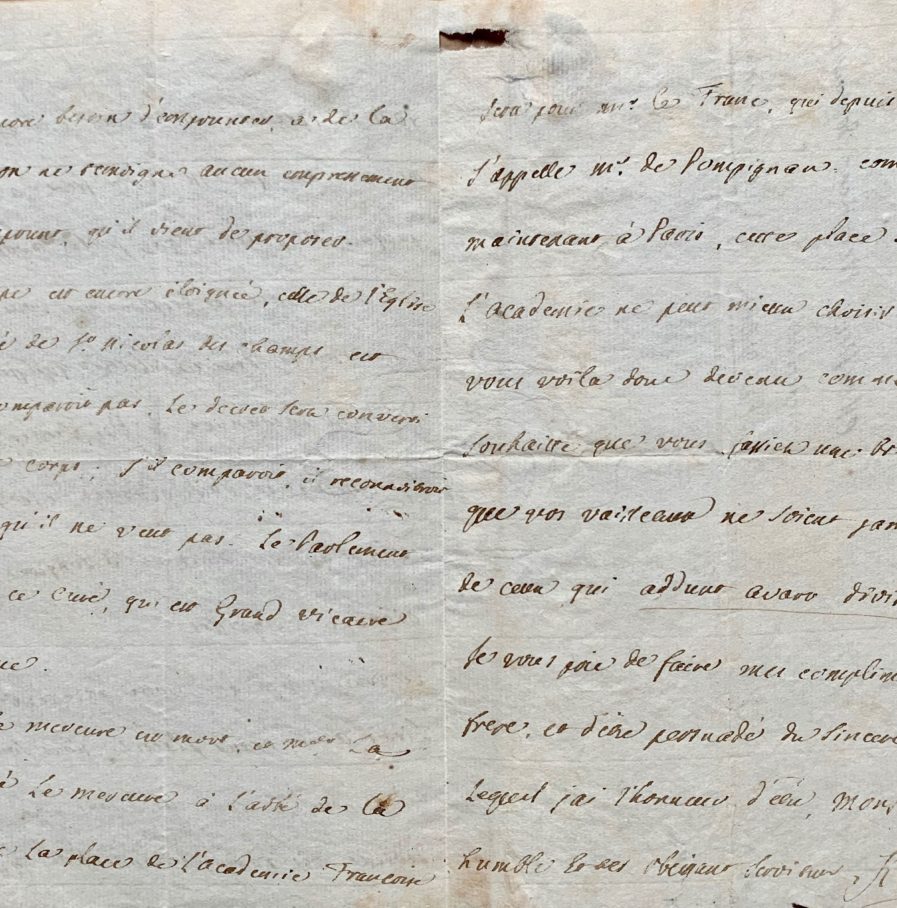 besoin d'emprunter, a de la
on ne temoigne aucun empressement
qu'il vient de proposer.
est encore éloignée, celle de l'Eglise
de St. Nicolas des champs est
comparoit pas. Le decret sera converti
corps. S'il comparoit, il reconnoitroit
qu'il ne veut pas. Le Parlement
ce Curé, qui est Grand vicaire
Le mercure est mort, et
Le mercure à l'abbé de La
La place de l'academie Françoise
sera pour mr. Le Franc, qui depuis
s'appelle mr. de Pompignan.
maintenant à Paris, cette place
l'academie ne peut mieux choisir
vous voila donc devenu
souhaitte que vous une
que vos vaisseaux ne soient
de ceux qui addunt avaro
Je vous prie de faire mes
frere, et d'etre persuadé du sincere
respect j'ai l'honneur d'être,
humble et tres obeissant serviteur